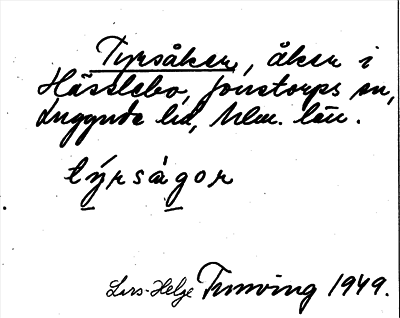 Tyrsåker, åker i
Hässlebo, Jonstorps sn,
Luggude hd, Mlm. län.
týrsågor
Lars-Helge Tunving 1949.